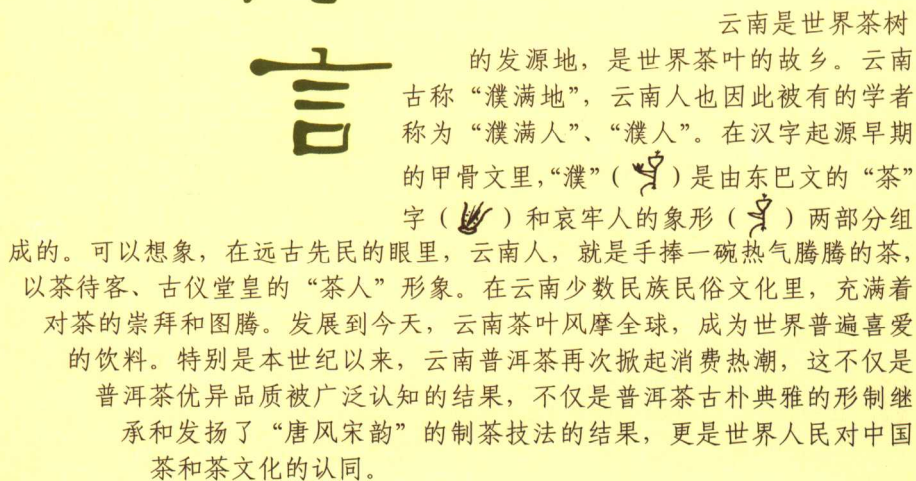 言
云南是世界茶树
的发源地，是世界茶叶的故乡。云南
古称“濮满地”，云南人也因此被有的学者
称为“濮满人”、“濮人”。在汉字起源早期
的甲骨文里，“濮”（ ）是由东巴文的“茶”
字（ ）和哀牢人的象形（ ）两部分组
成的。可以想象，在远古先民的眼里，云南人，就是手捧一碗热气腾腾的茶，
以茶待客、古仪堂皇的“茶人”形象。在云南少数民族民俗文化里，充满着
对茶的崇拜和图腾。发展到今天，云南茶叶风摩全球，成为世界普遍喜爱
的饮料。特别是本世纪以来，云南普洱茶再次掀起消费热潮，这不仅是
普洱茶优异品质被广泛认知的结果，不仅是普洱茶古朴典雅的形制继
承和发扬了“唐风宋韵”的制茶技法的结果，更是世界人民对中国
茶和茶文化的认同。